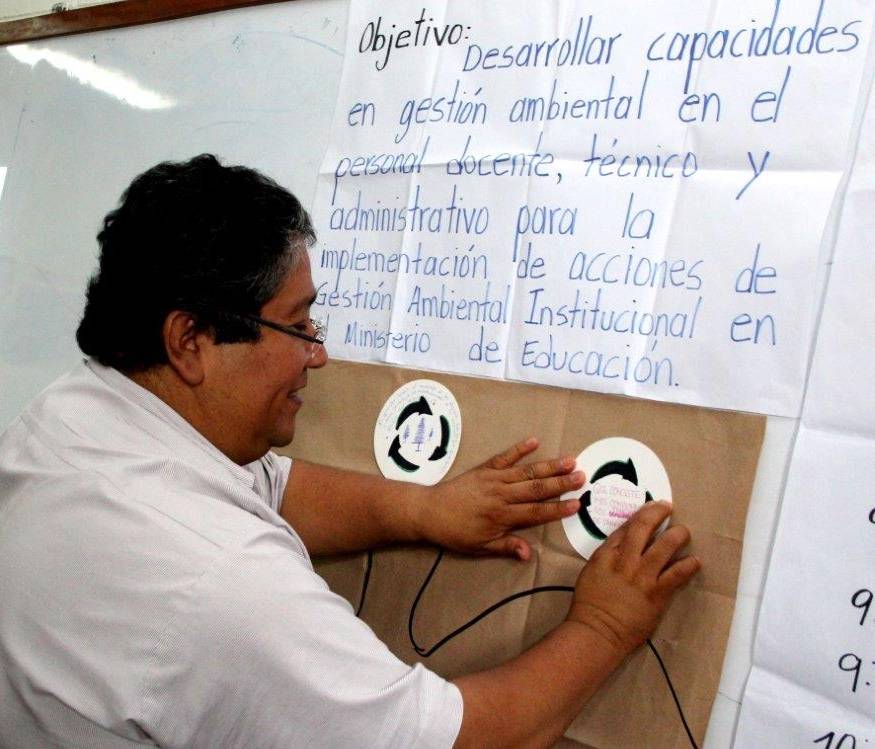 Objetivo: Desarrollar capacidades
en gestión ambiental en el
personal docente, técnico y
administrativo para la
implementación de acciones de
Gestión Ambiental Institucional en
Ministerio de Educación.